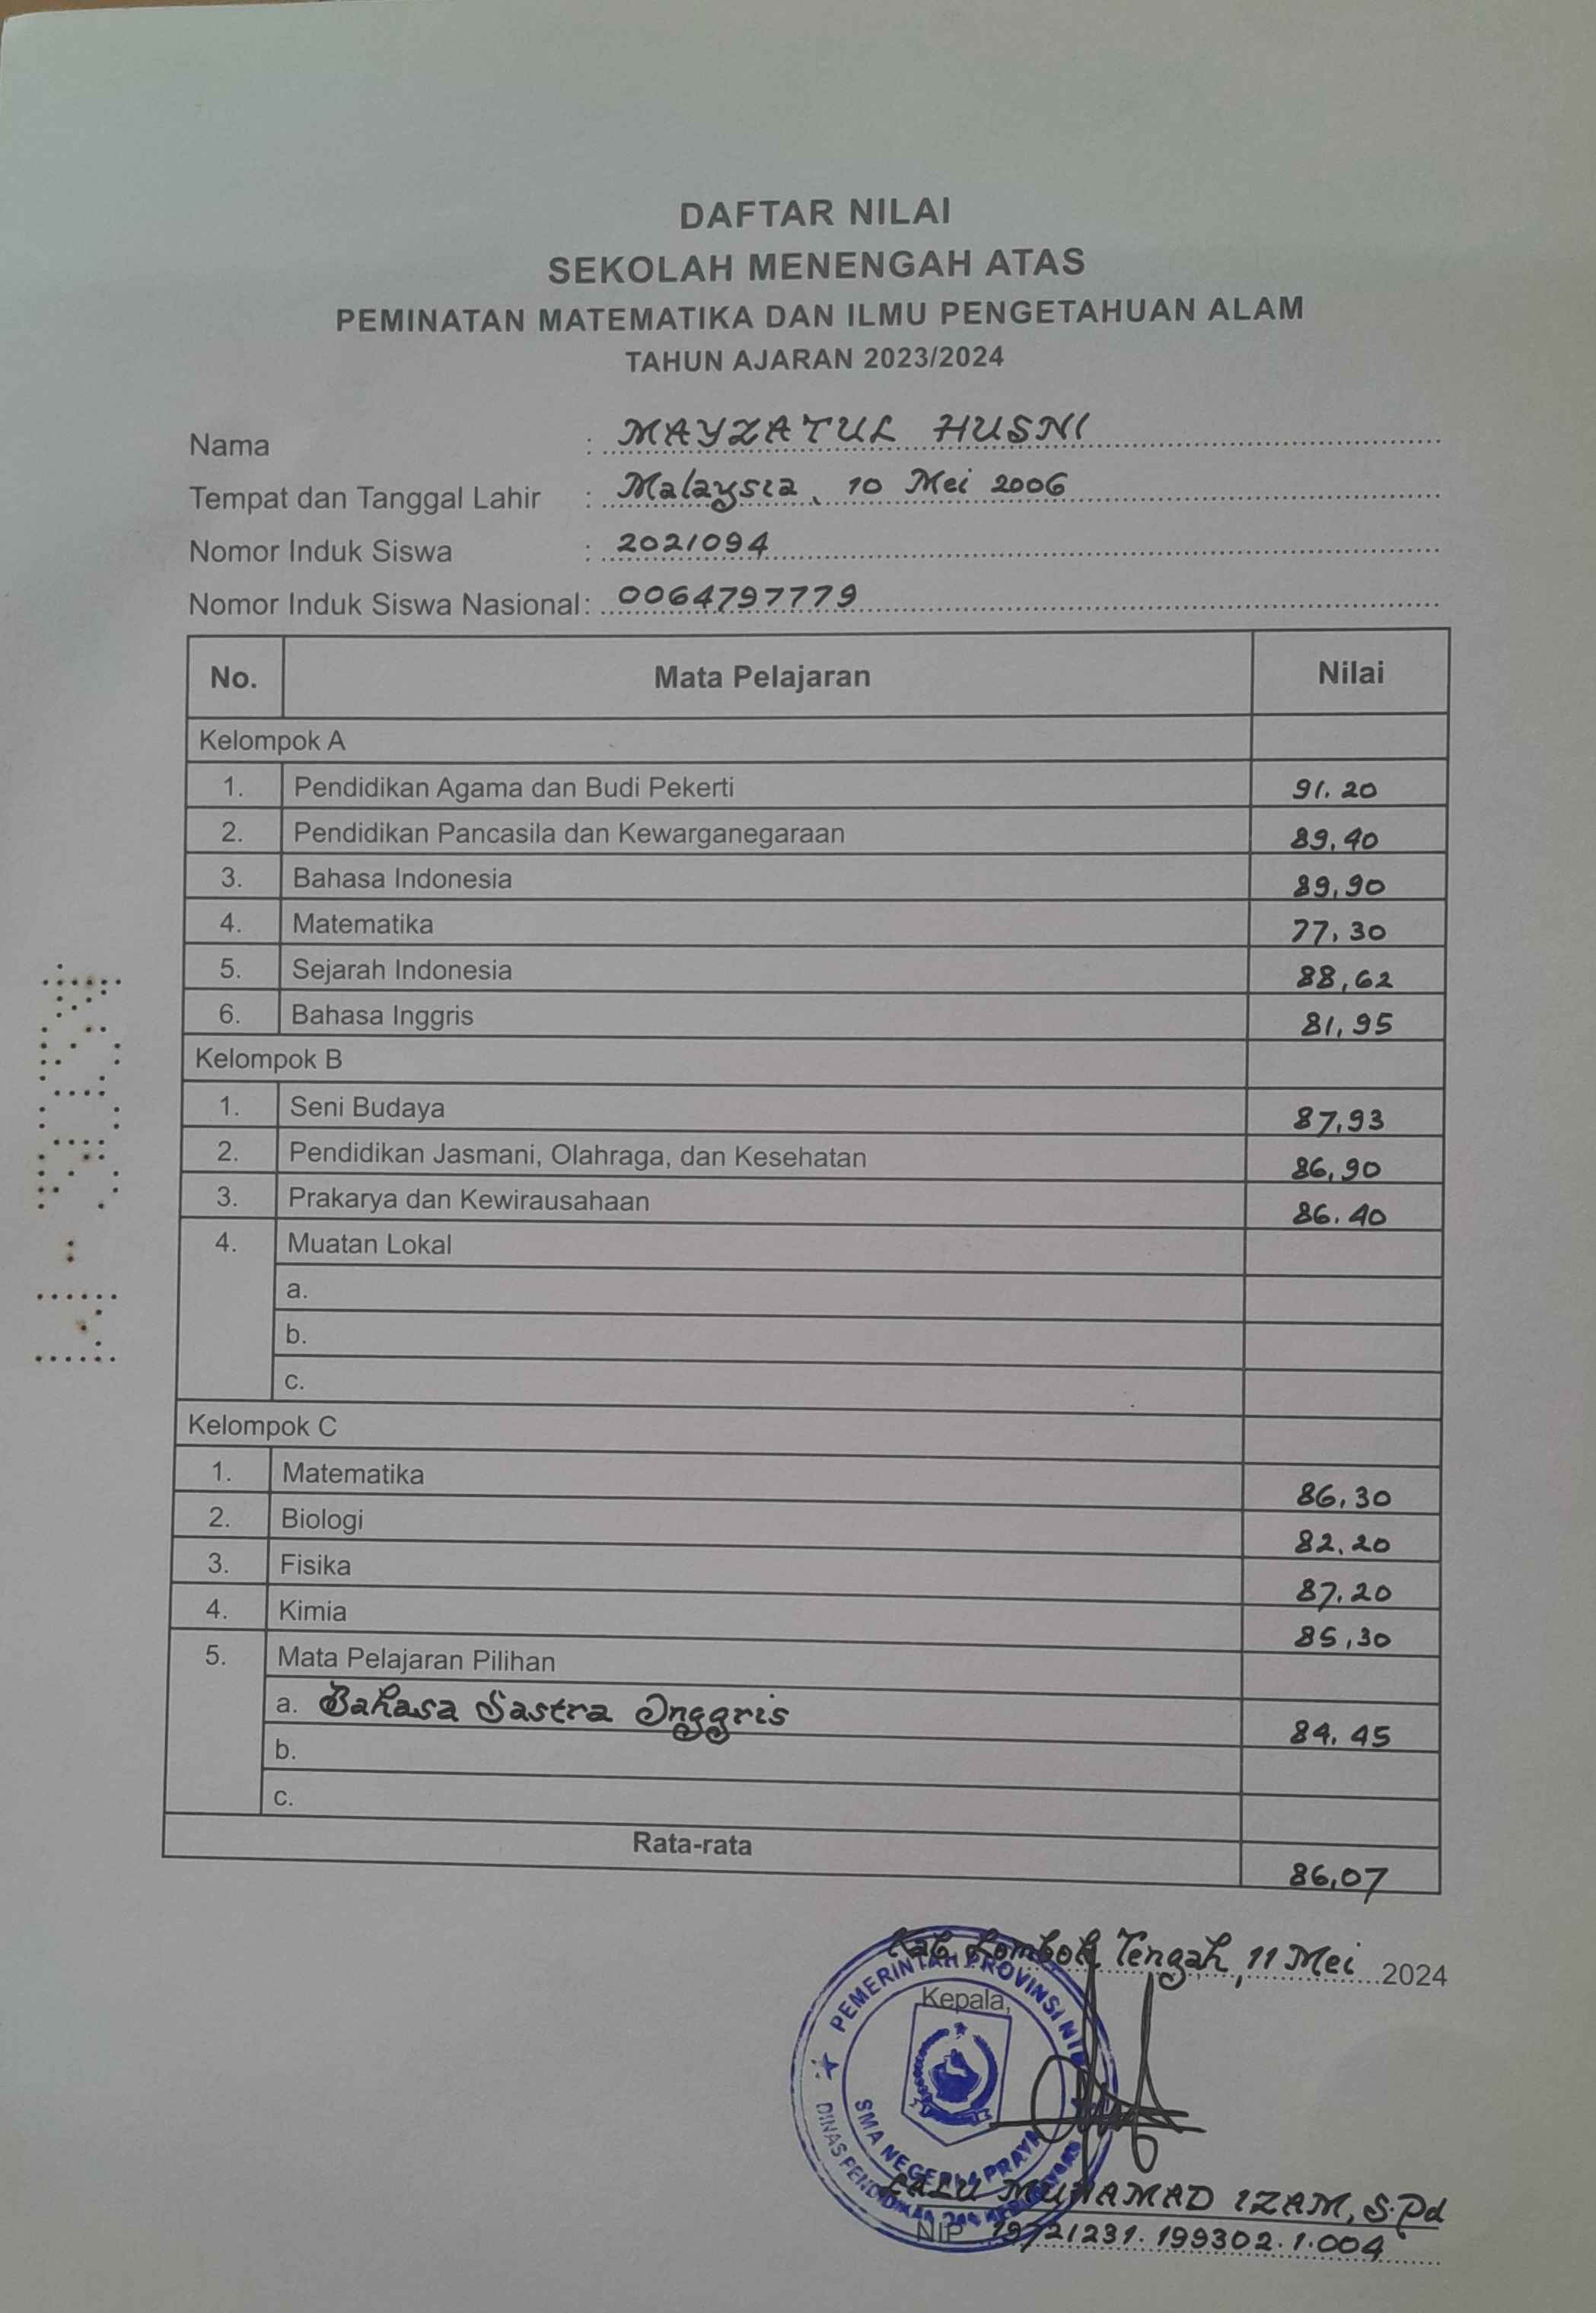 DAFTAR NILAI
SEKOLAH MENENGAH ATAS
PEMINATAN MATEMATIKA DAN ILMU PENGETAHUAN ALAM
TAHUN AJARAN 2023/2024
Nama : MAYZATUL HUSNI
Tempat dan Tanggal Lahir : Malaysia, 10 Mei 2006
Nomor Induk Siswa : 2021094
Nomor Induk Siswa Nasional : 0064797779
No. Mata Pelajaran Nilai
Kelompok A
1. Pendidikan Agama dan Budi Pekerti 91.20
2. Pendidikan Pancasila dan Kewarganegaraan 89,40
3. Bahasa Indonesia 89,90
4. Matematika 77,30
5. Sejarah Indonesia 88,62
6. Bahasa Inggris 81,95
Kelompok B
1. Seni Budaya 87,93
2. Pendidikan Jasmani, Olahraga, dan Kesehatan 86,90
3. Prakarya dan Kewirausahaan 86.40
4. Muatan Lokal
a.
b.
c.
Kelompok C
1. Matematika 86,30
2. Biologi 82.20
3. Fisika 87.20
4. Kimia 85,30
5. Mata Pelajaran Pilihan
a. Bahasa Sastra Inggris 84.45
b.
c.
Rata-rata 86,07
Kab. Lombok Tengah, 11 Mei 2024
Kepala,
PEMERINTAH PROVINSI NTB
SMA NEGERI PRAYA
DINAS PENDIDIKAN DAN KEBUDAYAAN
LALU MUHAMAD IZAM, S.Pd
NIP 19721231.199302.1.004